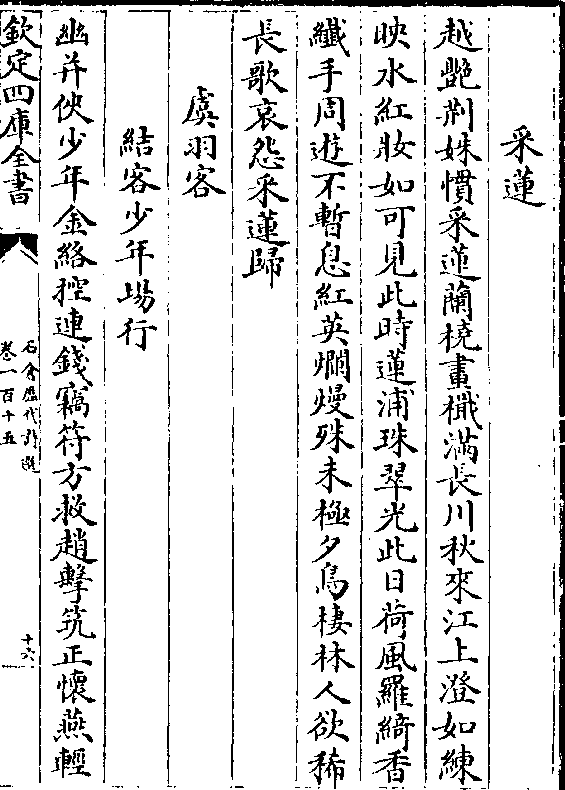 采蓮
越艷荆姝慣采蓮蘭橈畫檝滿長川秋來江上澄如練
映水紅妝如可見此時蓮浦珠翠光此日荷風羅綺香
纎手周遊不暫息紅英爛熳殊未極夕鳥棲林人欲稀
長歌哀怨采蓮歸
虞羽客
結客少年場行
幽并俠少年金絡控連錢竊符方救趙擊筑正懷燕輕
欽定四庫全書
石倉歷代詩選
卷一百十五
十六